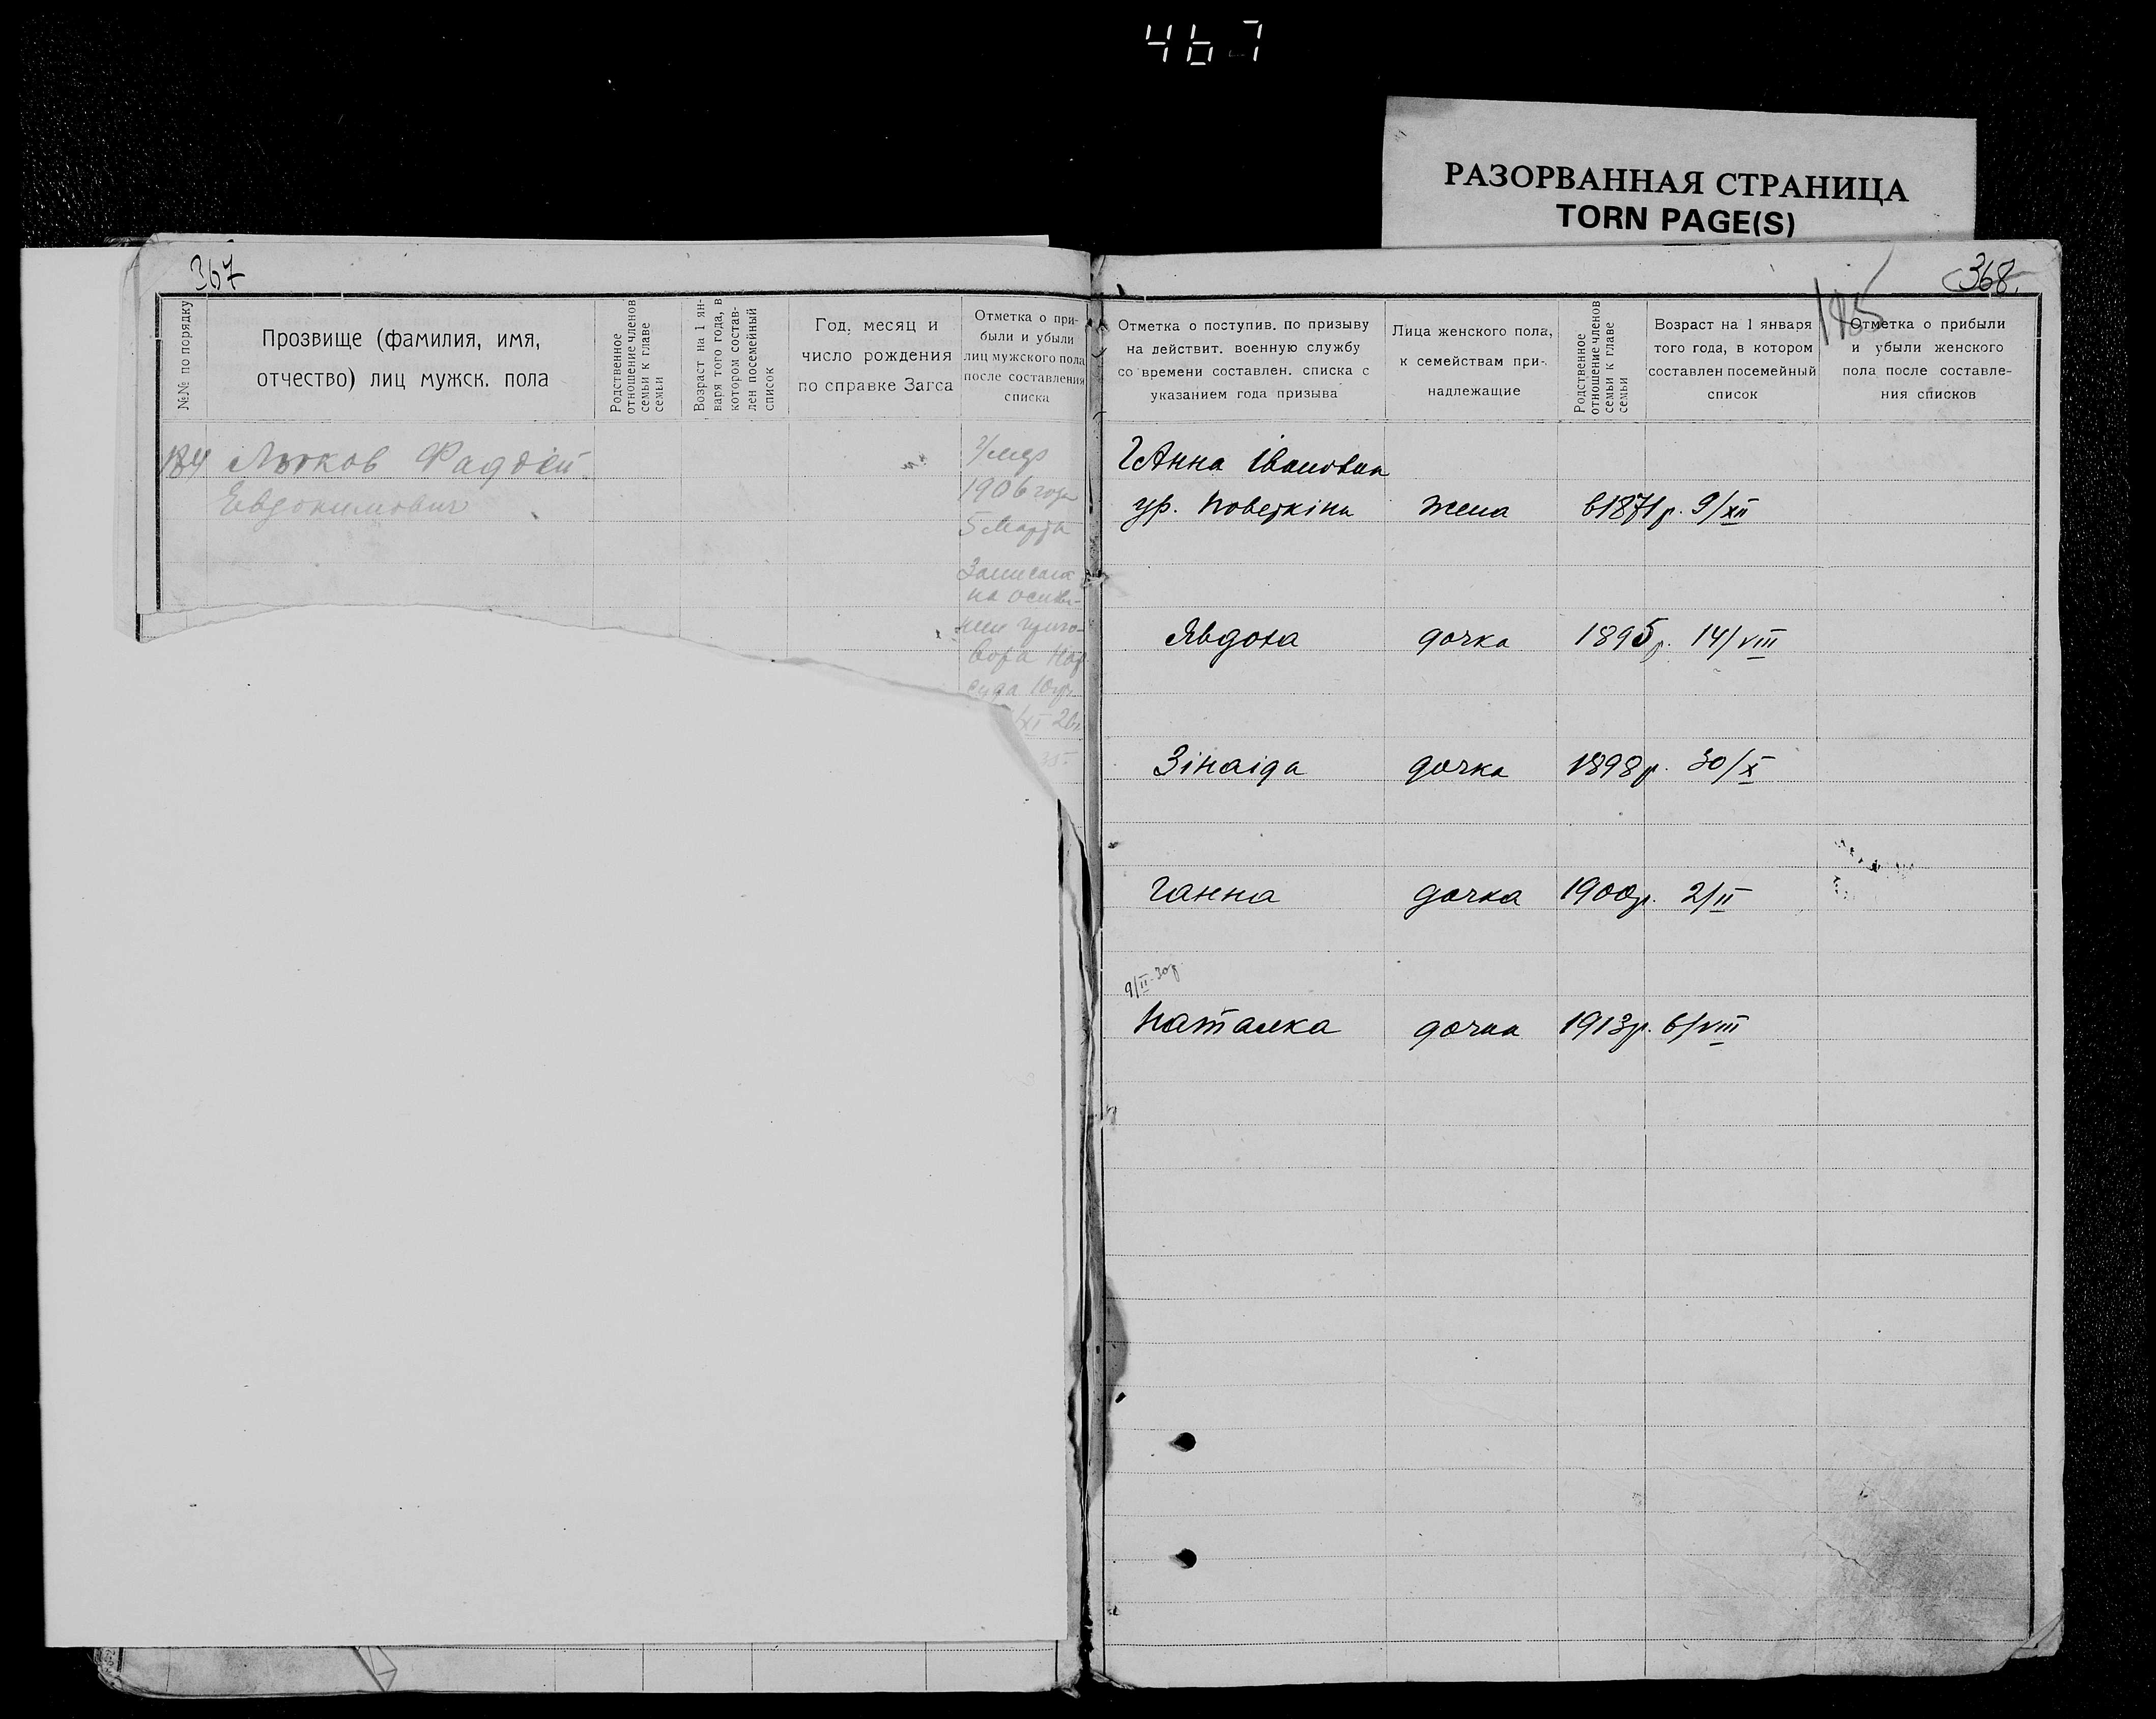 467
РАЗОРВАННАЯ СТРАНИЦА
TORN PAGE(S)
367
№№ по порядку
Прозвище (фамилия, имя,
отчество) лиц мужск. пола
Родственное
отношение членов
семьи к главе
семьи
Возраст на 1 ян-
варя того года, в
котором состав-
лен посемейный
список
Год, месяц и
число рождения
по справке Загса
Отметка о при-
были и убыли
лиц мужского пола
после составления
списка
184 Лыков Фаддей
Евдокимович
Умер
1906 года
5 Марта
Записан
на основ-
нии приго-
вора Нар
суда
/XI 26
368.
185
Отметка о поступив. по призыву
на действит. военную службу
со времени составлен. списка с
указанием года призыва
Лица женского пола,
к семействам при-
надлежащие
Родственное
отношение членов
семьи к главе
семьи
Возраст на 1 января
того года, в котором
составлен посемейный
список
Отметка о прибыли
и убыли женского
пола после составле-
ния списков
Анна Івановна
ур.Новеткіна жена 1871р. 9/XII
Явдоха дочка 1895р. 14/VIII
Зінаіда дочка 1898р. 30/X
Ганна дочка 1900р. 2/II
9/II-30р
Наталка дочка 1913р. 6/VIII